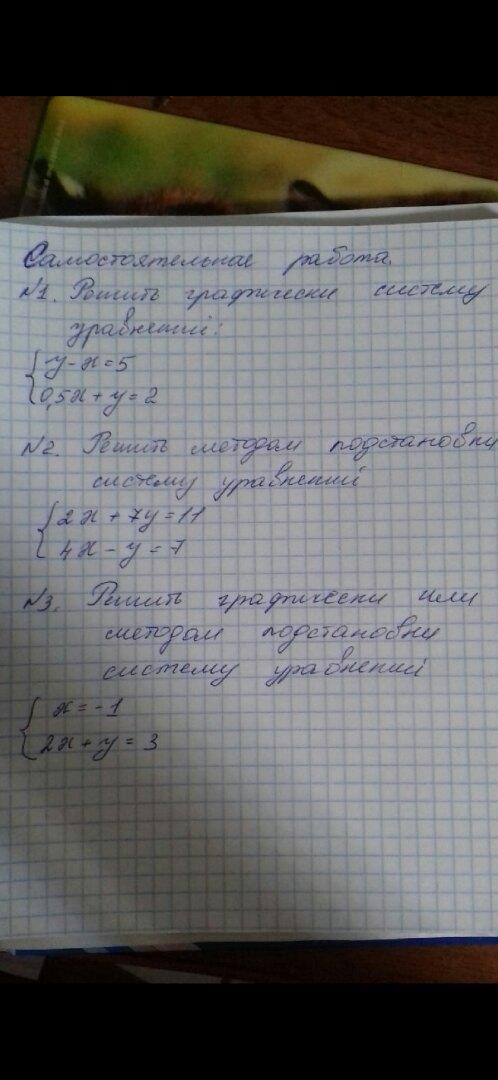 Самостоятельная работа.
№1. Решить графически систему
уравнений:
y - x = 5
0,5x + y = 2
№2. Решить методом подстановки
систему уравнений
2x + 7y = 11
4x - y = 7
№3. Решить графически или
методом подстановки
систему уравнений
x = -1
2x + y = 3